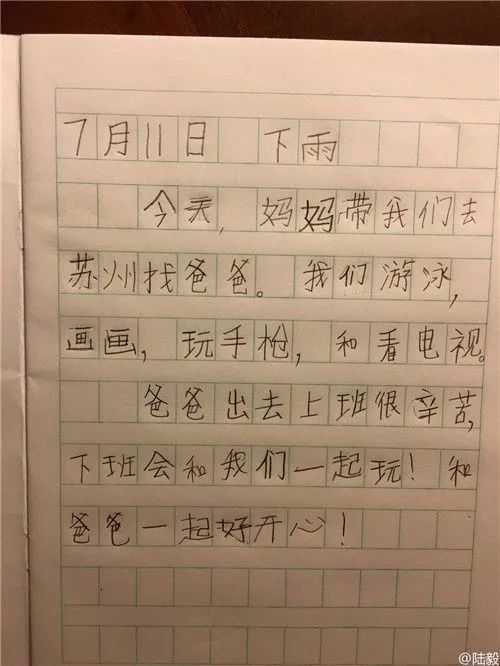 7月11日 下雨
今天,妈妈带我们去
苏州找爸爸。我们游泳,
画画,玩手枪,和看电视。
爸爸出去上班很辛苦,
下班会和我们一起玩!和
爸爸一起好开心!
@陆毅